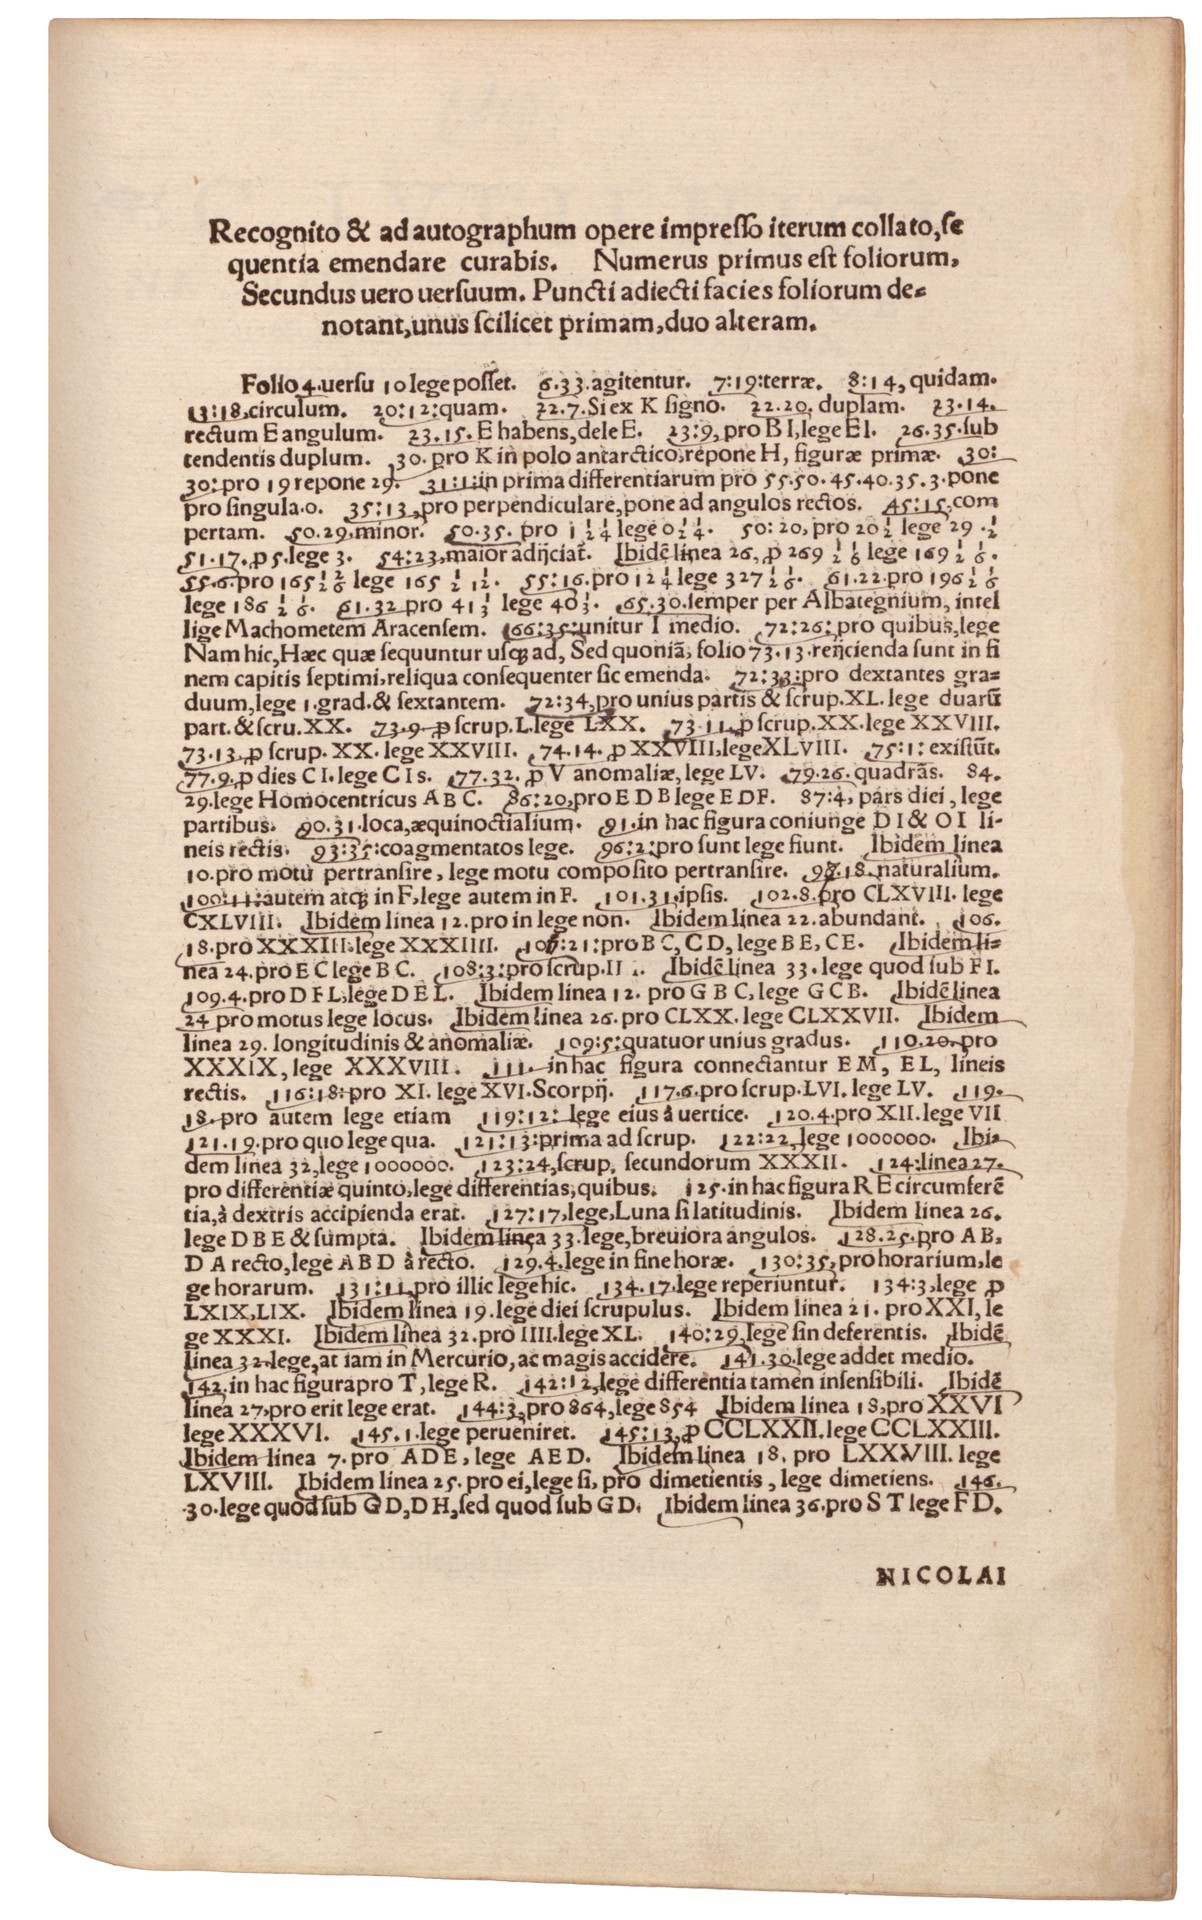 Recognito & ad autographum opere impresso iterum collato, se
quentia emendare curabis. Numerus primus est foliorum,
Secundus uero uersuum. Puncti adiecti facies foliorum de-
notant, unus scilicet primam, duo alteram.
Folio 4. uersu 10 lege posset. 6.33. agitentur. 7:19: terræ. 8:14, quidam.
13:18, circulum. 20:12: quam. 22.7. Si ex K signo. 22.20. duplam. 23.14.
rectum E angulum. 23.15. E habens, dele E. 23:9, pro B I, lege E I. 26.35. sub
tendentis duplum. 30. pro K in polo antarctico, repone H, figuræ primæ. 30:
30: pro 19 repone 29. 31:1: in prima differentiarum pro 55.50.45.40.35.3. pone
pro singula .0. 35:13, pro perpendiculare, pone ad angulos rectos. 45:15, com
pertam. 50.29, minor. 50.35. pro 1 ½ ¼ lege 0 ½ ¼. 50:20, pro 20 ½ lege 29 . ½
51.17. p 5. lege 3. 54:23, maior adijciat̃. Ibidẽ linea 26, p 269 ½ ⅙ lege 169 ½ ⅙.
55.6. pro 165 ½ 2/6 lege 165 ½ 1/12. 55:16. pro 12 ¼ lege 327 ½ ⅙. 61.22. pro 196 ½ ⅙
lege 186 ½ ⅙. 61.32 pro 41 ⅓ lege 40 ⅓. 65.30. semper per Albategnium, intel
lige Machometem Aracensem. 66:35: unitur I medio. 72:26: pro quibus, lege
Nam hic, Hæc quæ sequuntur usq; ad, Sed quoniã, folio 73.13. reijcienda sunt in fi
nem capitis septimi, reliqua consequenter sic emenda. 72:33: pro dextantes gra-
duum, lege 1. grad. & sextantem. 72:34, pro unius partis & scrup. XL. lege duarũ
part. & scru. XX. 73.9. p scrup. L. lege LXX. 73.11. p scrup. XX. lege XXVIII.
73.13, p scrup. XX. lege XXVIII. 74.14. p XXVIII, lege XLVIII. 75:1: existũt.
77.9, p dies C I. lege C I s. 77.32. p V anomaliæ, lege LV. 79.26. quadrãs. 84.
29. lege Homocentricus A B C. 86:20, pro E D B lege E D F. 87:4, pars diei, lege
partibus. 90.31. loca, æquinoctialium. 91. in hac figura coniunge D I & O I li-
neis rectis. 93:35: coagmentatos lege. 96:2: pro sunt lege fiunt. Ibidem linea
10. pro motu pertransire, lege motu composito pertransire. 98.18. naturalium.
100:11: autem atq; in F, lege autem in F. 101.31, ipsis. 102.8. pro CLXVIII. lege
CXLVIII. Ibidem linea 12. pro in lege non. Ibidem linea 22. abundant. 106.
18. pro XXXIII. lege XXXIIII. 21: pro B C, C D, lege B E, C E. Ibidem li-
nea 24. pro E C lege B C. 108:3: pro scrup. II Ibidẽ linea 33. lege quod sub F I.
109.4. pro D F L, lege D E L. Ibidem linea 12. pro G B C, lege G C B. Ibidẽ linea
24 pro motus lege locus. Ibidem linea 26. pro CLXX. lege CLXXVII. Ibidem
linea 29. longitudinis & anomaliæ. 109:5: quatuor unius gradus. 110.20. pro
XXXIX, lege XXXVIII. 111. in hac figura connectantur E M, E L, lineis
rectis. 116:18: pro XI. lege XVI. Scorpij. 117.6. pro scrup. LVI. lege LV. 119.
18. pro autem lege etiam 119:12: lege eius à uertice. 120.4. pro XII. lege VII
121.19. pro quo lege qua. 121:13: prima ad scrup. 122:22, lege 1000000. Ibi-
dem linea 32, lege 1000000. 123:24, scrup. secundorum XXXII. 124: linea 27.
pro differentiæ quinto, lege differentias, quibus. 125. in hac figura R E circumferẽ
tia, à dextris accipienda erat. 127:17, lege, Luna si latitudinis. Ibidem linea 26.
lege D B E & sumpta. Ibidem linea 33. lege, breuiora angulos. 128.25. pro A B,
D A recto, lege A B D à recto. 129.4. lege in fine horæ. 130:35, pro horarium, le
ge horarum. 131:11, pro illic lege hic. 134.17. lege reperiuntur. 134:3, lege p
LXIX, LIX. Ibidem linea 19. lege diei scrupulus. Ibidem linea 21. pro XXI, le
ge XXXI. Ibidem linea 32. pro IIII. lege XL. 140:29, lege sin deferentis. Ibidẽ
linea 32. lege, at iam in Mercurio, ac magis accidere. 141.30. lege addet medio.
142, in hac figura pro T, lege R. 142:12, lege differentia tamen insensibili. Ibidẽ
linea 27, pro erit lege erat. 144:3, pro 864, lege 854 Ibidem linea 18, pro XXVI
lege XXXVI. 145.1. lege perueniret. 145:13, p CCLXXII. lege CCLXXIII.
Ibidem linea 7. pro A D E, lege A E D. Ibidem linea 18. pro LXXVIII. lege
LXVIII. Ibidem linea 25. pro ei, lege si, pro dimetientis, lege dimetiens. 146.
30. lege quod sub G D, D H, sed quod sub G D. Ibidem linea 36. pro S T lege F D.
NICOLAI